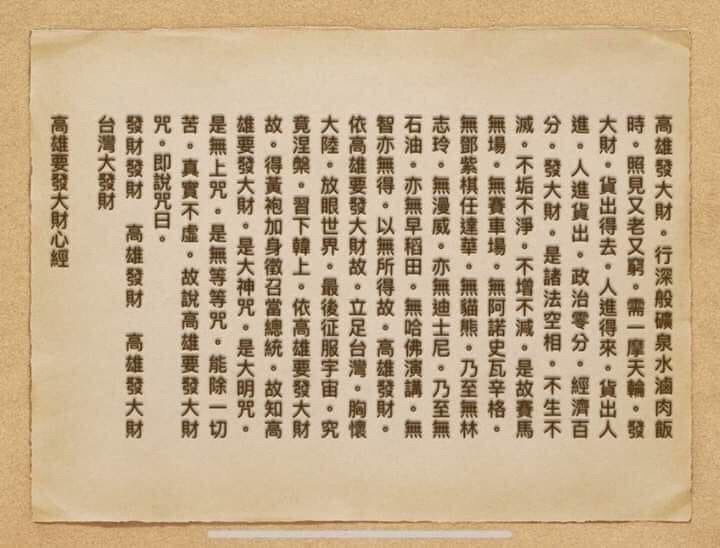 高雄發大財。行深般礦泉水滷肉飯
時。照見又老又窮。需一摩天輪。發
大財。貨出得去。人進得來。貨出人
進。人進貨出。政治零分。經濟百
分。發大財。是諸法空相。不生不
滅。不垢不淨。不增不減。是故賽馬
無場。無賽車場。無阿諾史瓦辛格。
無鄧紫棋任達華。無貓熊。乃至無林
志玲。無漫威。亦無迪士尼。乃至無
石油。亦無早稻田。無哈佛演講。無
智亦無得。以無所得故。高雄發財。
依高雄要發大財故。立足台灣。胸懷
大陸。放眼世界。最後征服宇宙。究
竟涅槃。習下韓上。依高雄要發大財
故。得黃袍加身徵召當總統。故知高
雄要發大財。是大神咒。是大明咒。
是無上咒。是無等等咒。能除一切
苦。真實不虛。故說高雄要發大財
咒。即說咒曰。
發財發財　高雄發財　高雄發大財
台灣大發財
高雄要發大財心經